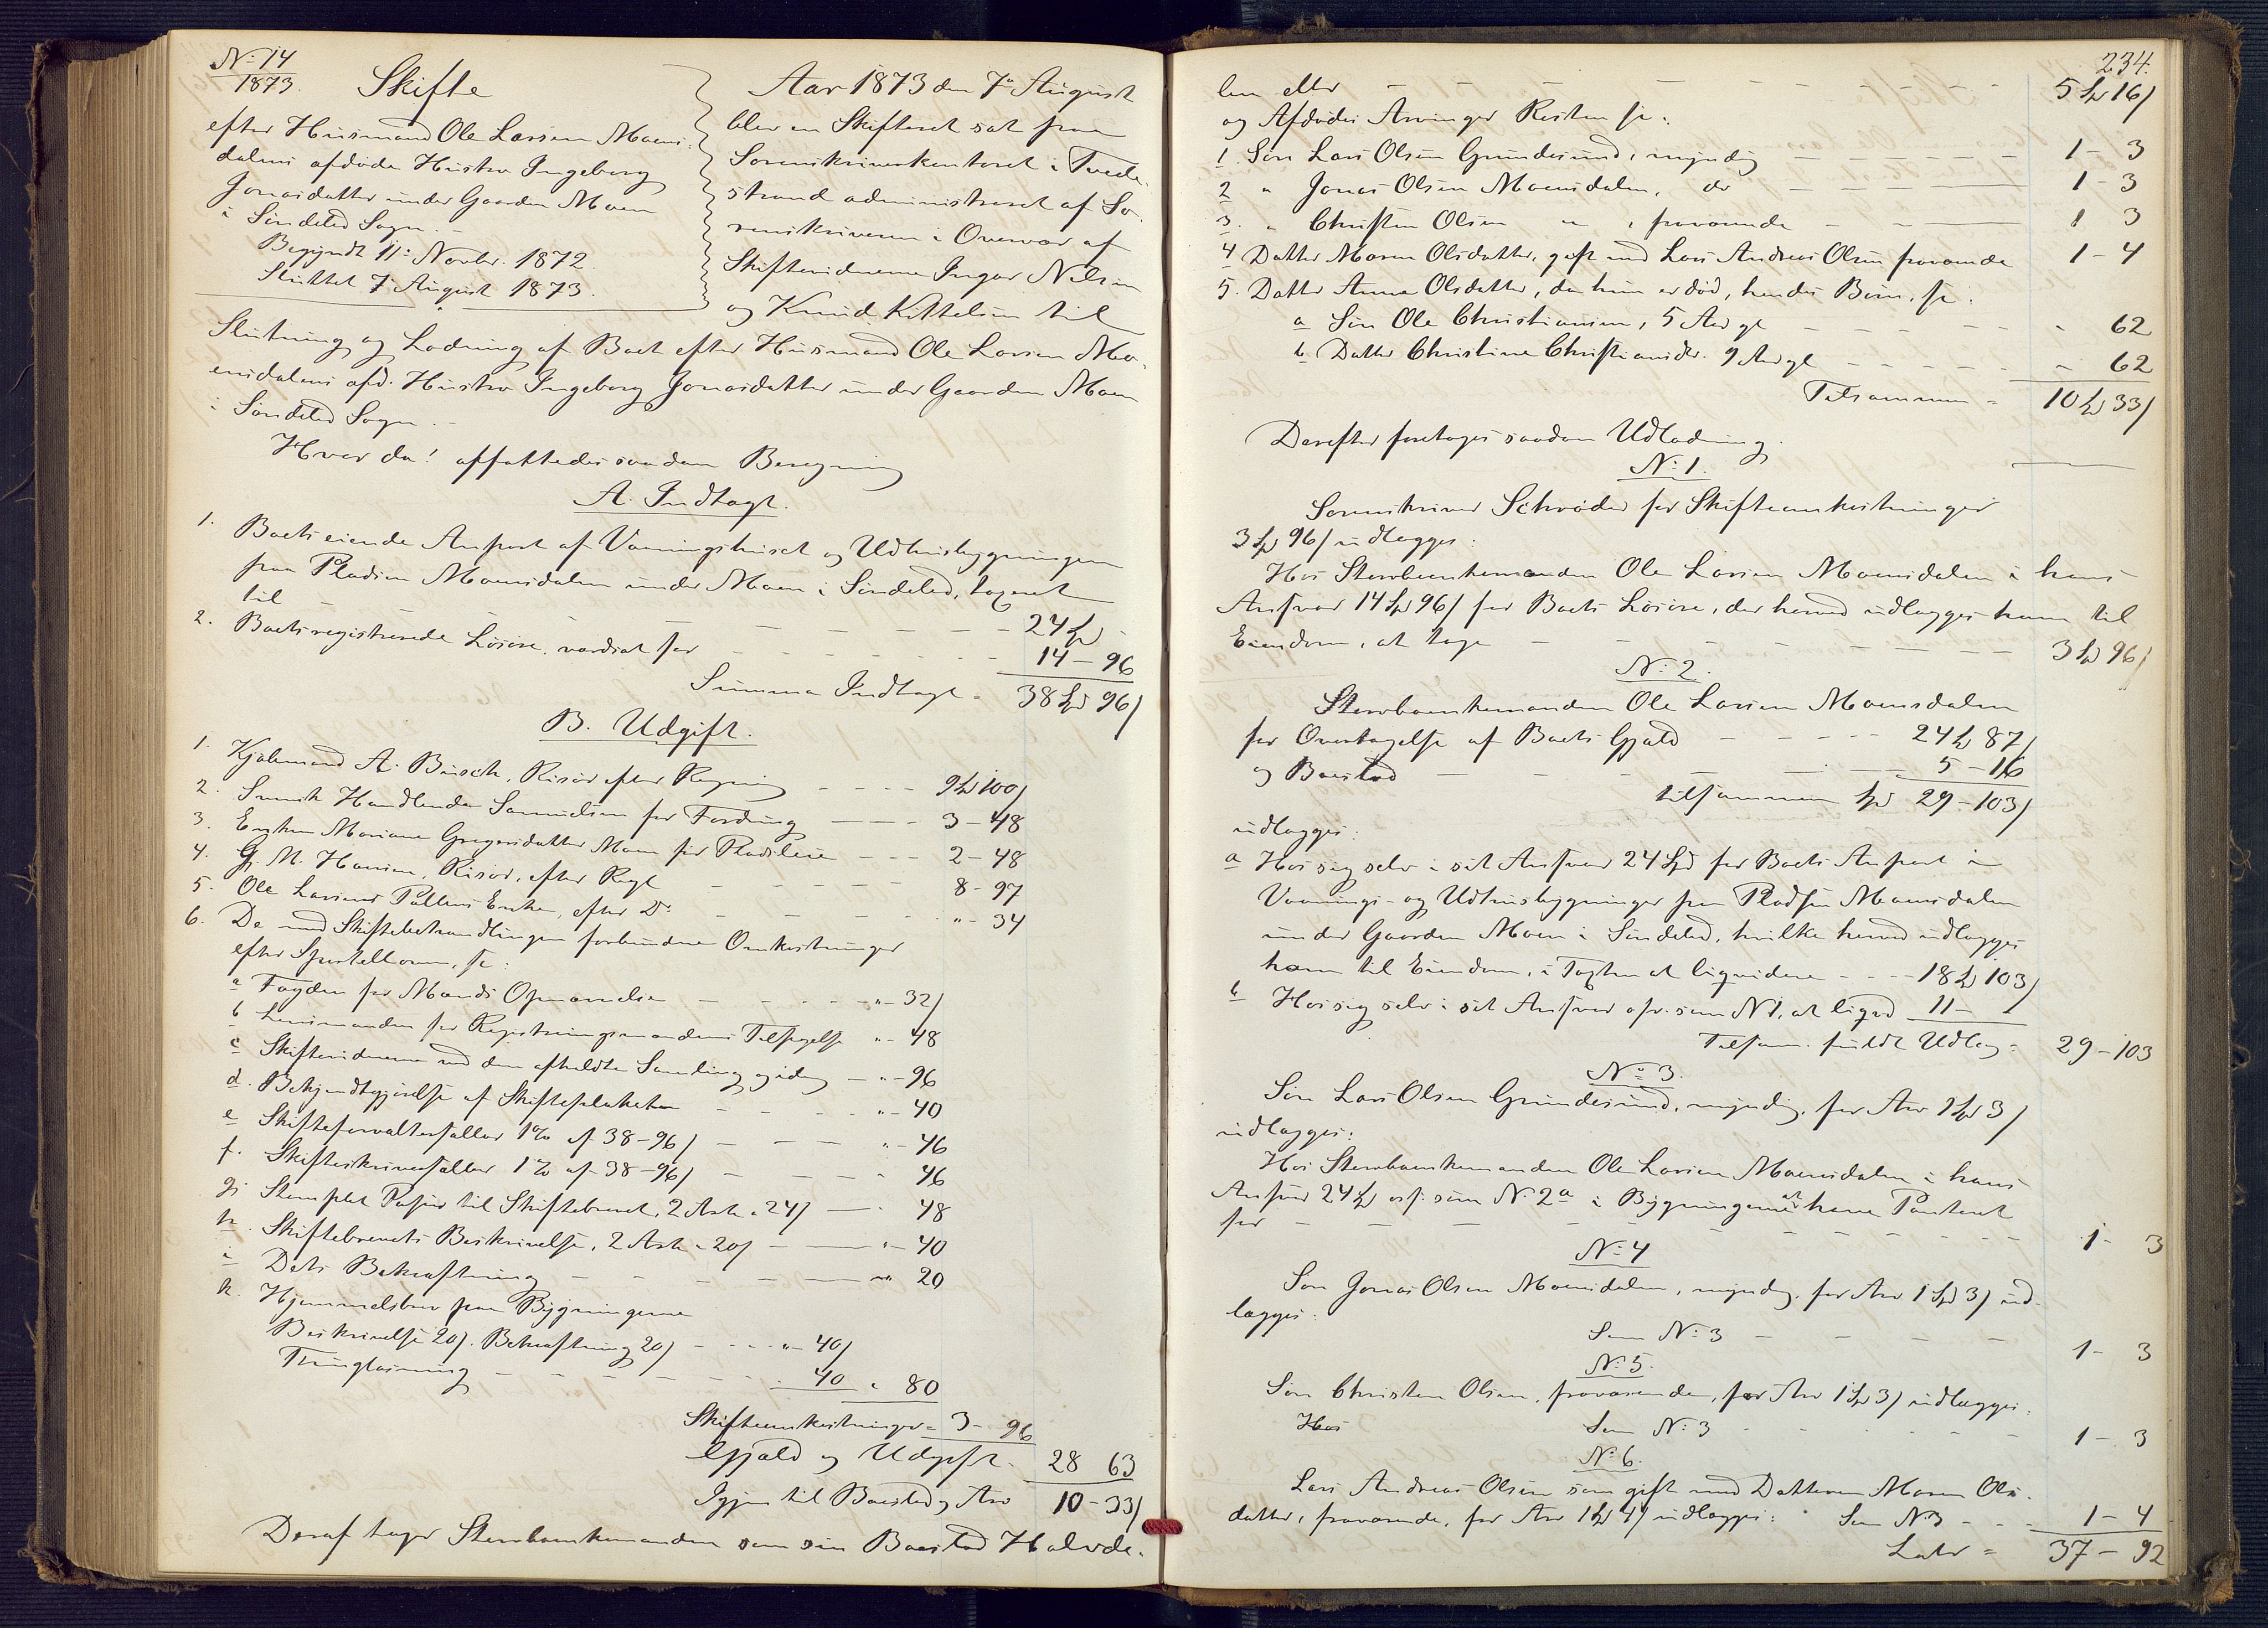 N: 14
1873.
Skifte
efter Husmand Ole Larsen Moens-
dalens afdøde Hustro Ingeborg
Jonasdatter under Gaarden Moen
i Søndeled Sogn.
Begyndt 11: Novbr. 1872.
Sluttet 7 August 1873.
Aar 1873 den 7de August
blev en Skifteret sat paa
Sorenskriverkontoret i Tvede-
strand administreret af So-
renskriveren i Overvær af
Skiftevidnerne Ingvar Nilsen
og Knud Kittelsen til
Slutning og Lodning af Boet efter Husmand Ole Larsen Mo-
ensdalens afd. Hustro Ingeborg Jonasdatter under Gaarden Moen
i Søndeled Sogn.
Hvor da! affattedes saadan Beregning
A. Indtægt.
1. Boets eiende Anpart af Vaaningshuset og Udhusbygningen
paa Pladsen Moensdalen under Moen i Søndeled, taxeret
til 24 Spd
2. Boets registrerede Løsøre, værdsat for 14 - 96
Summa Indtægt = 38 Spd 96 ſ
B. Udgift.
1. Kjøbmand A. Busch, Risør efter Regning 9 Spd 100 ſ
2. Svensk Handlende Samuelsen for Fordring 3 - 48
3. Enken Mariane Gregersdatter Moen for Pladsleie 2 - 48
4. G. M. Hansen, Risør, efter Regl 8 - 97
5. Ole Larsens Pollens Enke, efter Do " - 34
6. De med Skiftebehandlingen forbundne Omkostninger
efter Sportelloven, se:
a Fogden for Mands Opnævnelse " - 32 ſ
b Lensmanden for Registreringsmændenes Tilsigelse " - 48
c Skiftevidnerne ved den afholdte Samling og idag " - 96
d. Bekjendtgjørelse af Skifteplakaten " - 40
e Skifteforvaltersallær 1% af 38 - 96 ſ " - 46
f. Skifteskriversallær 1% af 38 - 96 ſ " 46
g. Stemplet Papir til Skiftebrevet, 2 Ark a 24 ſ 48
h. Skiftebrevets Beskrivelse, 2 Ark a 20 ſ " - 40
i Dets Bekræftning " 20
k. Hjemmelsbrev paa Bygningerne
Beskrivelse 20 ſ. Bekræftning 20 ſ " - 40 ſ
Thinglæsning 40 " 80
Skifteomkostninger = 3 - 96
Gjæld og Udgift = 28 63
Igjen til Boeslod og Arv 10 - 33 ſ
Deraf tager Stervboenkemanden som sin Boeslod Halvde-
234.
len eller 5 Spd 16 ſ
og Afdødes Arvinger Resten se:
1. Søn Lars Olsen Grundesund, myndig 1 - 3
2 " Jonas Olsen Moensdalen, do 1 - 3
3. " Christen Olsen " , fraværende 1 3
4 Datter Maren Olsdatter, gift med Lars Andreas Olsen fraværende 1 - 4
5. Datter Anne Olsdatter, da hun er død, hendes Børn, se.
a Søn Ole Christiansen, 5 Aar gl " 62
b Datter Christine Christiansdtr. 9 Aar gl " 62
Tilsammen = 10 Spd 33 ſ
Derefter foretages saadan Udlodning
N: 1.
Sorenskriver Schrøder for Skifteomkostninger
3 Spd 96 ſ udlægges:
Hos Stervboenkemanden Ole Larsen Moensdalen i hans
Ansvar 14 Spd 96 ſ for Boets Løsøre, der herved udlægges ham til
Eiendom, at tage 3 Spd 96 ſ
N: 2.
Stervboenkemanden Ole Larsen Moensdalen
for Overtagelse af Boets Gjæld 24 Spd 87 ſ
og Boeslod 5 - 16
tilsammen Spd 29 - 103 ſ
udlægges:
a Hos sig selv i sit Ansvar 24 Spd for Boets Anpart i
Vaanings- og Udhusbygninger paa Pladsen Moensdalen
under Gaarden Moen i Søndeled, hvilke herved udlægges
ham til Eiendom, i Taxten at liqvidere 18 Spd 103 ſ
b Hos sig selv i sit Ansvar ofr. som N 1, at liqvd 11 - 1
Tilsam. fuldt Udlæg = 29 - 103
No 3.
Søn Lars Olsen Grundesund, myndig, for Arv 1 Spd 3 ſ
udlægges:
Hos Stervboenkemanden Ole Larsen Moensdalen i hans
Ansvar 24 Spd ofr. som N: 2 a i Bygningerne at have Panteret
for 1 - 3
N: 4
Søn Jonas Olsen Moensdalen, myndig, for Arv 1 Spd 3 ſ ud-
lægges:
Som N: 3 1 - 3
N: 5.
Søn Christen Olsen, fraværende, for Arv 1 Spd 3 ſ udlægges:
Hos Som N: 3 1 - 3
N: 6.
Lars Andreas Olsen som gift med Datteren Maren Ols-
datter, fraværende, for Arv 1 Spd 4 ſ udlægges: Som N 3 1 - 4
Latr = 37 - 92